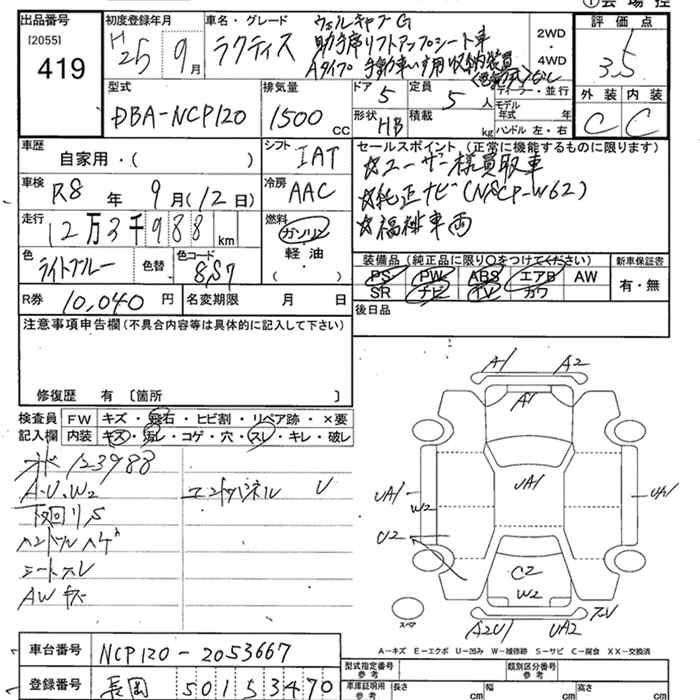 ①会場控
出品番号
[2055]
419
初度登録年月
H25 9月
車名・グレード
ラクティス
ウェルキャブG
助手席リフトアップシート車
Aタイプ 手動車いす用収納装置
2WD
・
4WD
評価点
3.5
外装 内装
C C
型式
DBA-NCP120
排気量
1500 cc
ドア 5
定員 5 人
形状 HB
積載 kg
ディーラー・並行
モデル
年式 年
ハンドル 左・右
車歴
自家用・( )
シフト IAT
車検 R8 年 9 月(12日)
冷房 AAC
走行 12万3千988 km
燃料
ガソリン
軽油
( )
色 ライトブルー
色替
色コード 8S7
R券 10,040 円
名変期限 月 日
セールスポイント(正常に機能するものに限ります)
☆ユーザー様買取車
☆純正ナビ(NSCP-W62)
☆福祉車両
装備品(純正品に限り〇をつけてください)
PS PW ABS エアB AW
SR ナビ TV カワ
新車保証書
有・無
後日品
注意事項申告欄(不具合内容等は具体的に記入して下さい)
修復歴 有〔箇所 〕
検査員
記入欄
FW キズ・飛石・ヒビ割・リペア跡・×要
内装 キズ・汚レ・コゲ・穴・スレ・キレ・破レ
オド 123988
A・U、W2
エンドパネル U
下回りS
ハンドルハゲ
シートスレ
AWキズ
A1 A2
A1
UA1
UA1
W2
UA1
C2
C2
W2
A2U1
UA2
スペア
A-キズ E-エクボ U-凹み W-補修跡 S-サビ C-腐食 XX-交換済
車台番号 NCP120-2053667
登録番号 長岡 501 5 3470
型式指定番号
参考
類別区分番号
参考
車庫証明用
参考
長さ cm
幅 cm
高さ cm